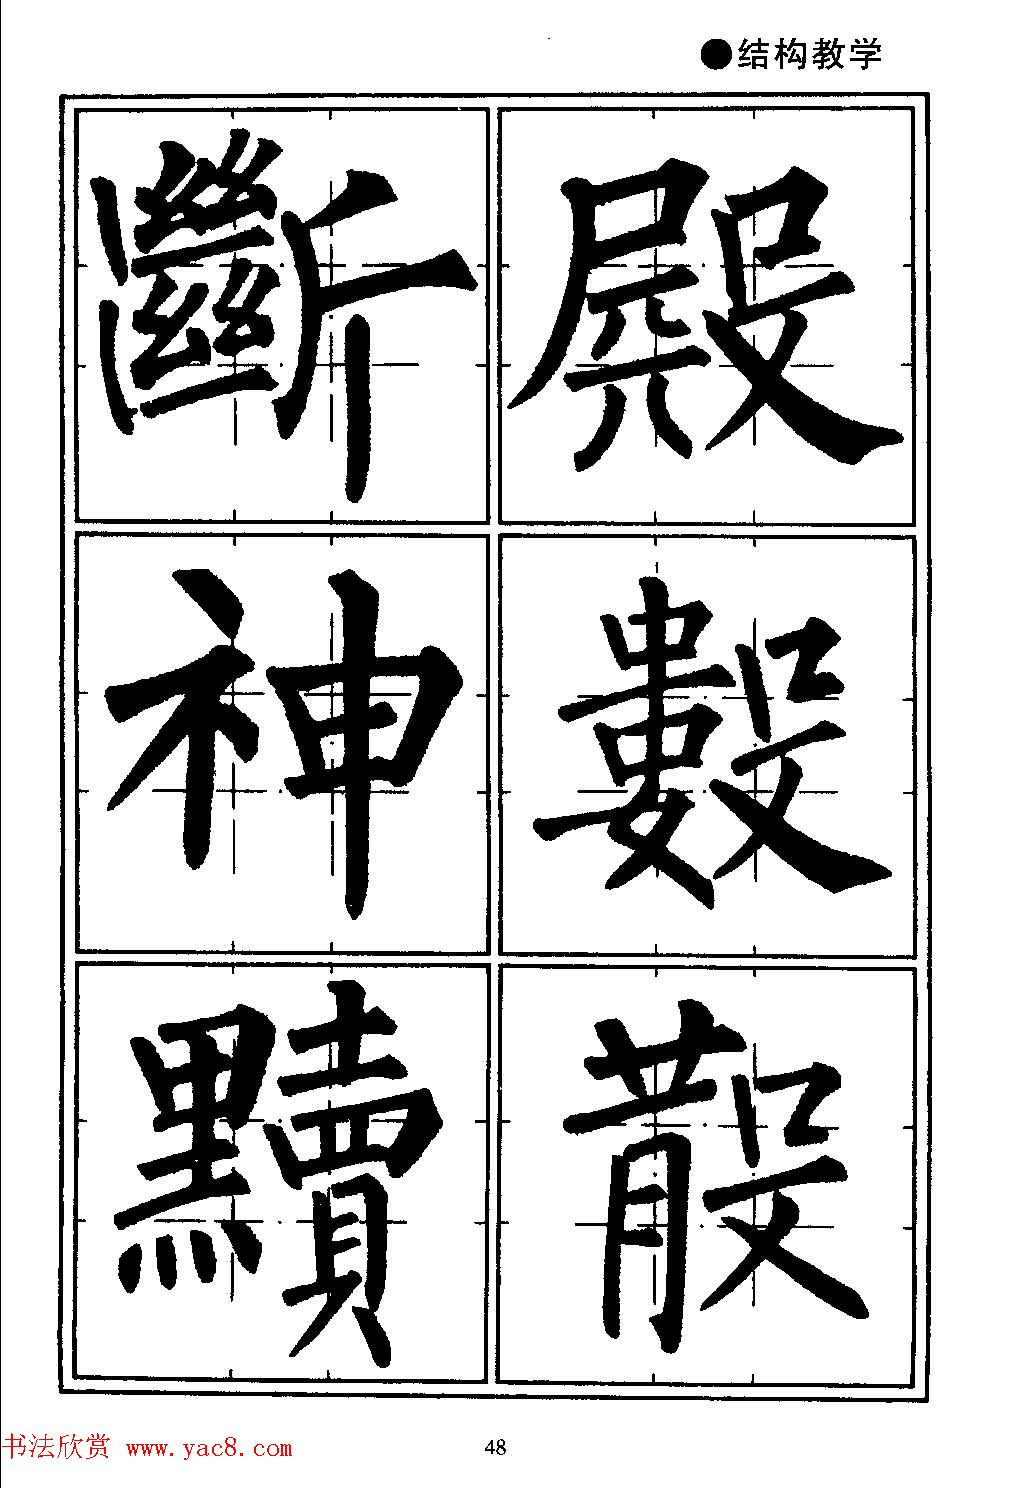 ●结构教学
斷 殿
神 數
黷 散
书法欣赏 www.yac8.com
48